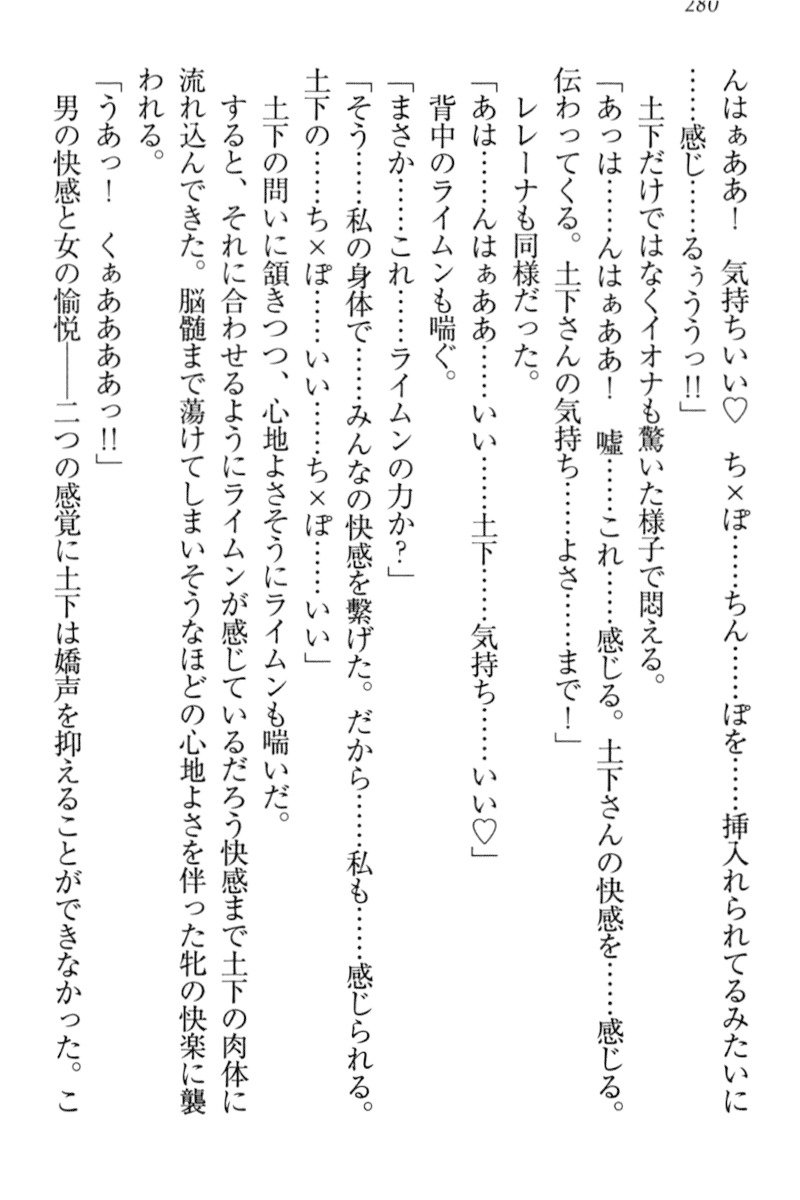 280
んはぁああ！　気持ちいい♡　ち×ぽ……ちん……ぽを……挿入れられてるみたいに
……感じ……るぅううっ!!」
　土下だけではなくイオナも驚いた様子で悶える。
「あっは……んはぁああ！　嘘……これ……感じる。土下さんの快感を……感じる。
伝わってくる。土下さんの気持ち……よさ……まで！」
　レレーナも同様だった。
「あは……んはぁああ……いい……土下……気持ち……いい♡」
　背中のライムンも喘ぐ。
「まさか……これ……ライムンの力か？」
「そう……私の身体で……みんなの快感を繋げた。だから……私も……感じられる。
土下の……ち×ぽ……いい……ち×ぽ……いい」
　土下の問いに頷きつつ、心地よさそうにライムンも喘いだ。
　すると、それに合わせるようにライムンが感じているだろう快感まで土下の肉体に
流れ込んできた。脳髄まで蕩けてしまいそうなほどの心地よさを伴った牝の快楽に襲
われる。
「うあっ！　くぁああああっ!!」
　男の快感と女の愉悦――二つの感覚に土下は嬌声を抑えることができなかった。こ